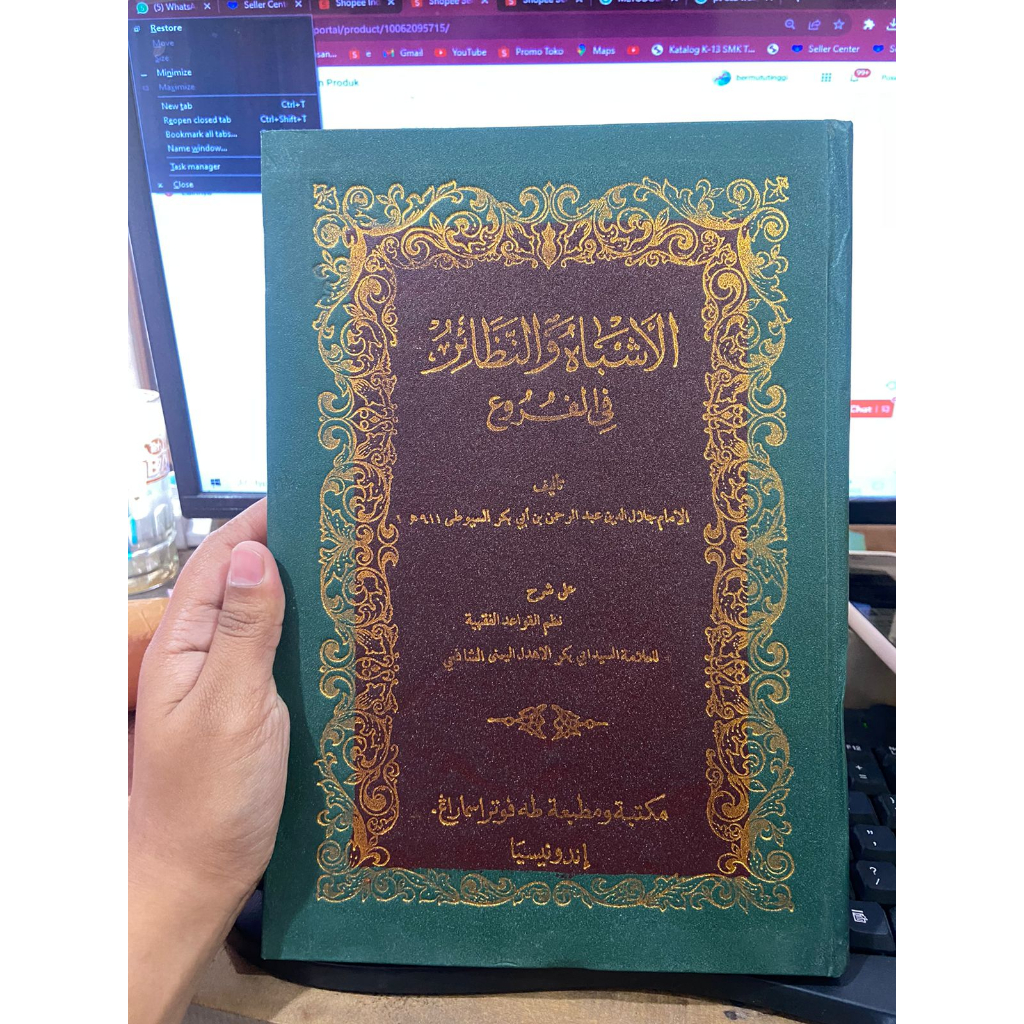 (5) WhatsA
Seller Cent
Shopee In
Restore
Move
Size
Minimize
Maximize
New tab Ctrl+T
Reopen closed tab Ctrl+Shift+T
Bookmark all tabs...
Name window...
Task manager
Close
portal/product/10062095715/
Gmail
YouTube
Promo Toko
Maps
Katalog K-13 SMK T...
Seller Center
n Produk
bermututinggi
99+
Chat
الاشباه والنظائر
في الفروع
تأليف
الامام جلال الدين عبد الرحمن بن أبي بكر السيوطى ٩١١ھ
على شرح
نظم القواعد الفقهية
للعلامة السيد ابي بكر الاهدل اليمنى الشافعي
مكتبة ومطبعة طه فوترا سماراغ.
إندونيسيا
F12